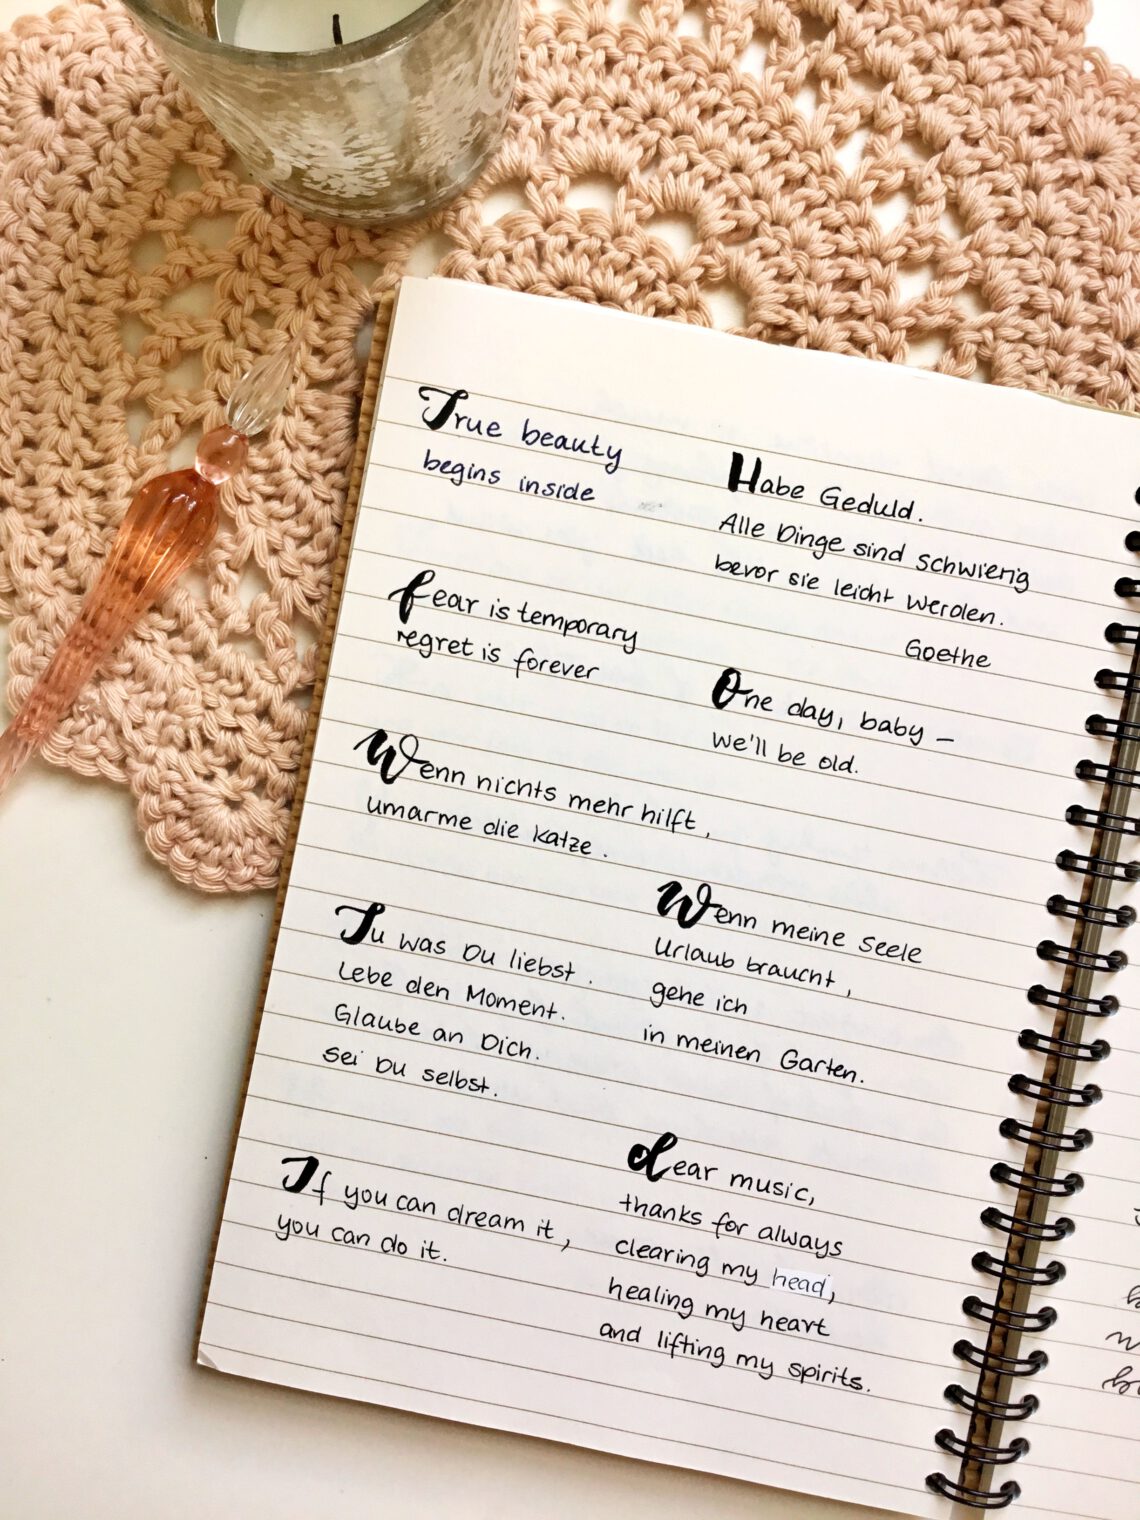 True beauty
begins inside
Habe Geduld.
Alle Dinge sind schwierig
bevor sie leicht werden.
Goethe
fear is temporary
regret is forever
One day, baby –
we'll be old.
Wenn nichts mehr hilft,
umarme die Katze.
Tu was Du liebst.
Lebe den Moment.
Glaube an Dich.
Sei Du selbst.
Wenn meine Seele
Urlaub braucht,
gehe ich
in meinen Garten.
If you can dream it,
you can do it.
dear music,
thanks for always
clearing my head,
healing my heart
and lifting my spirits.